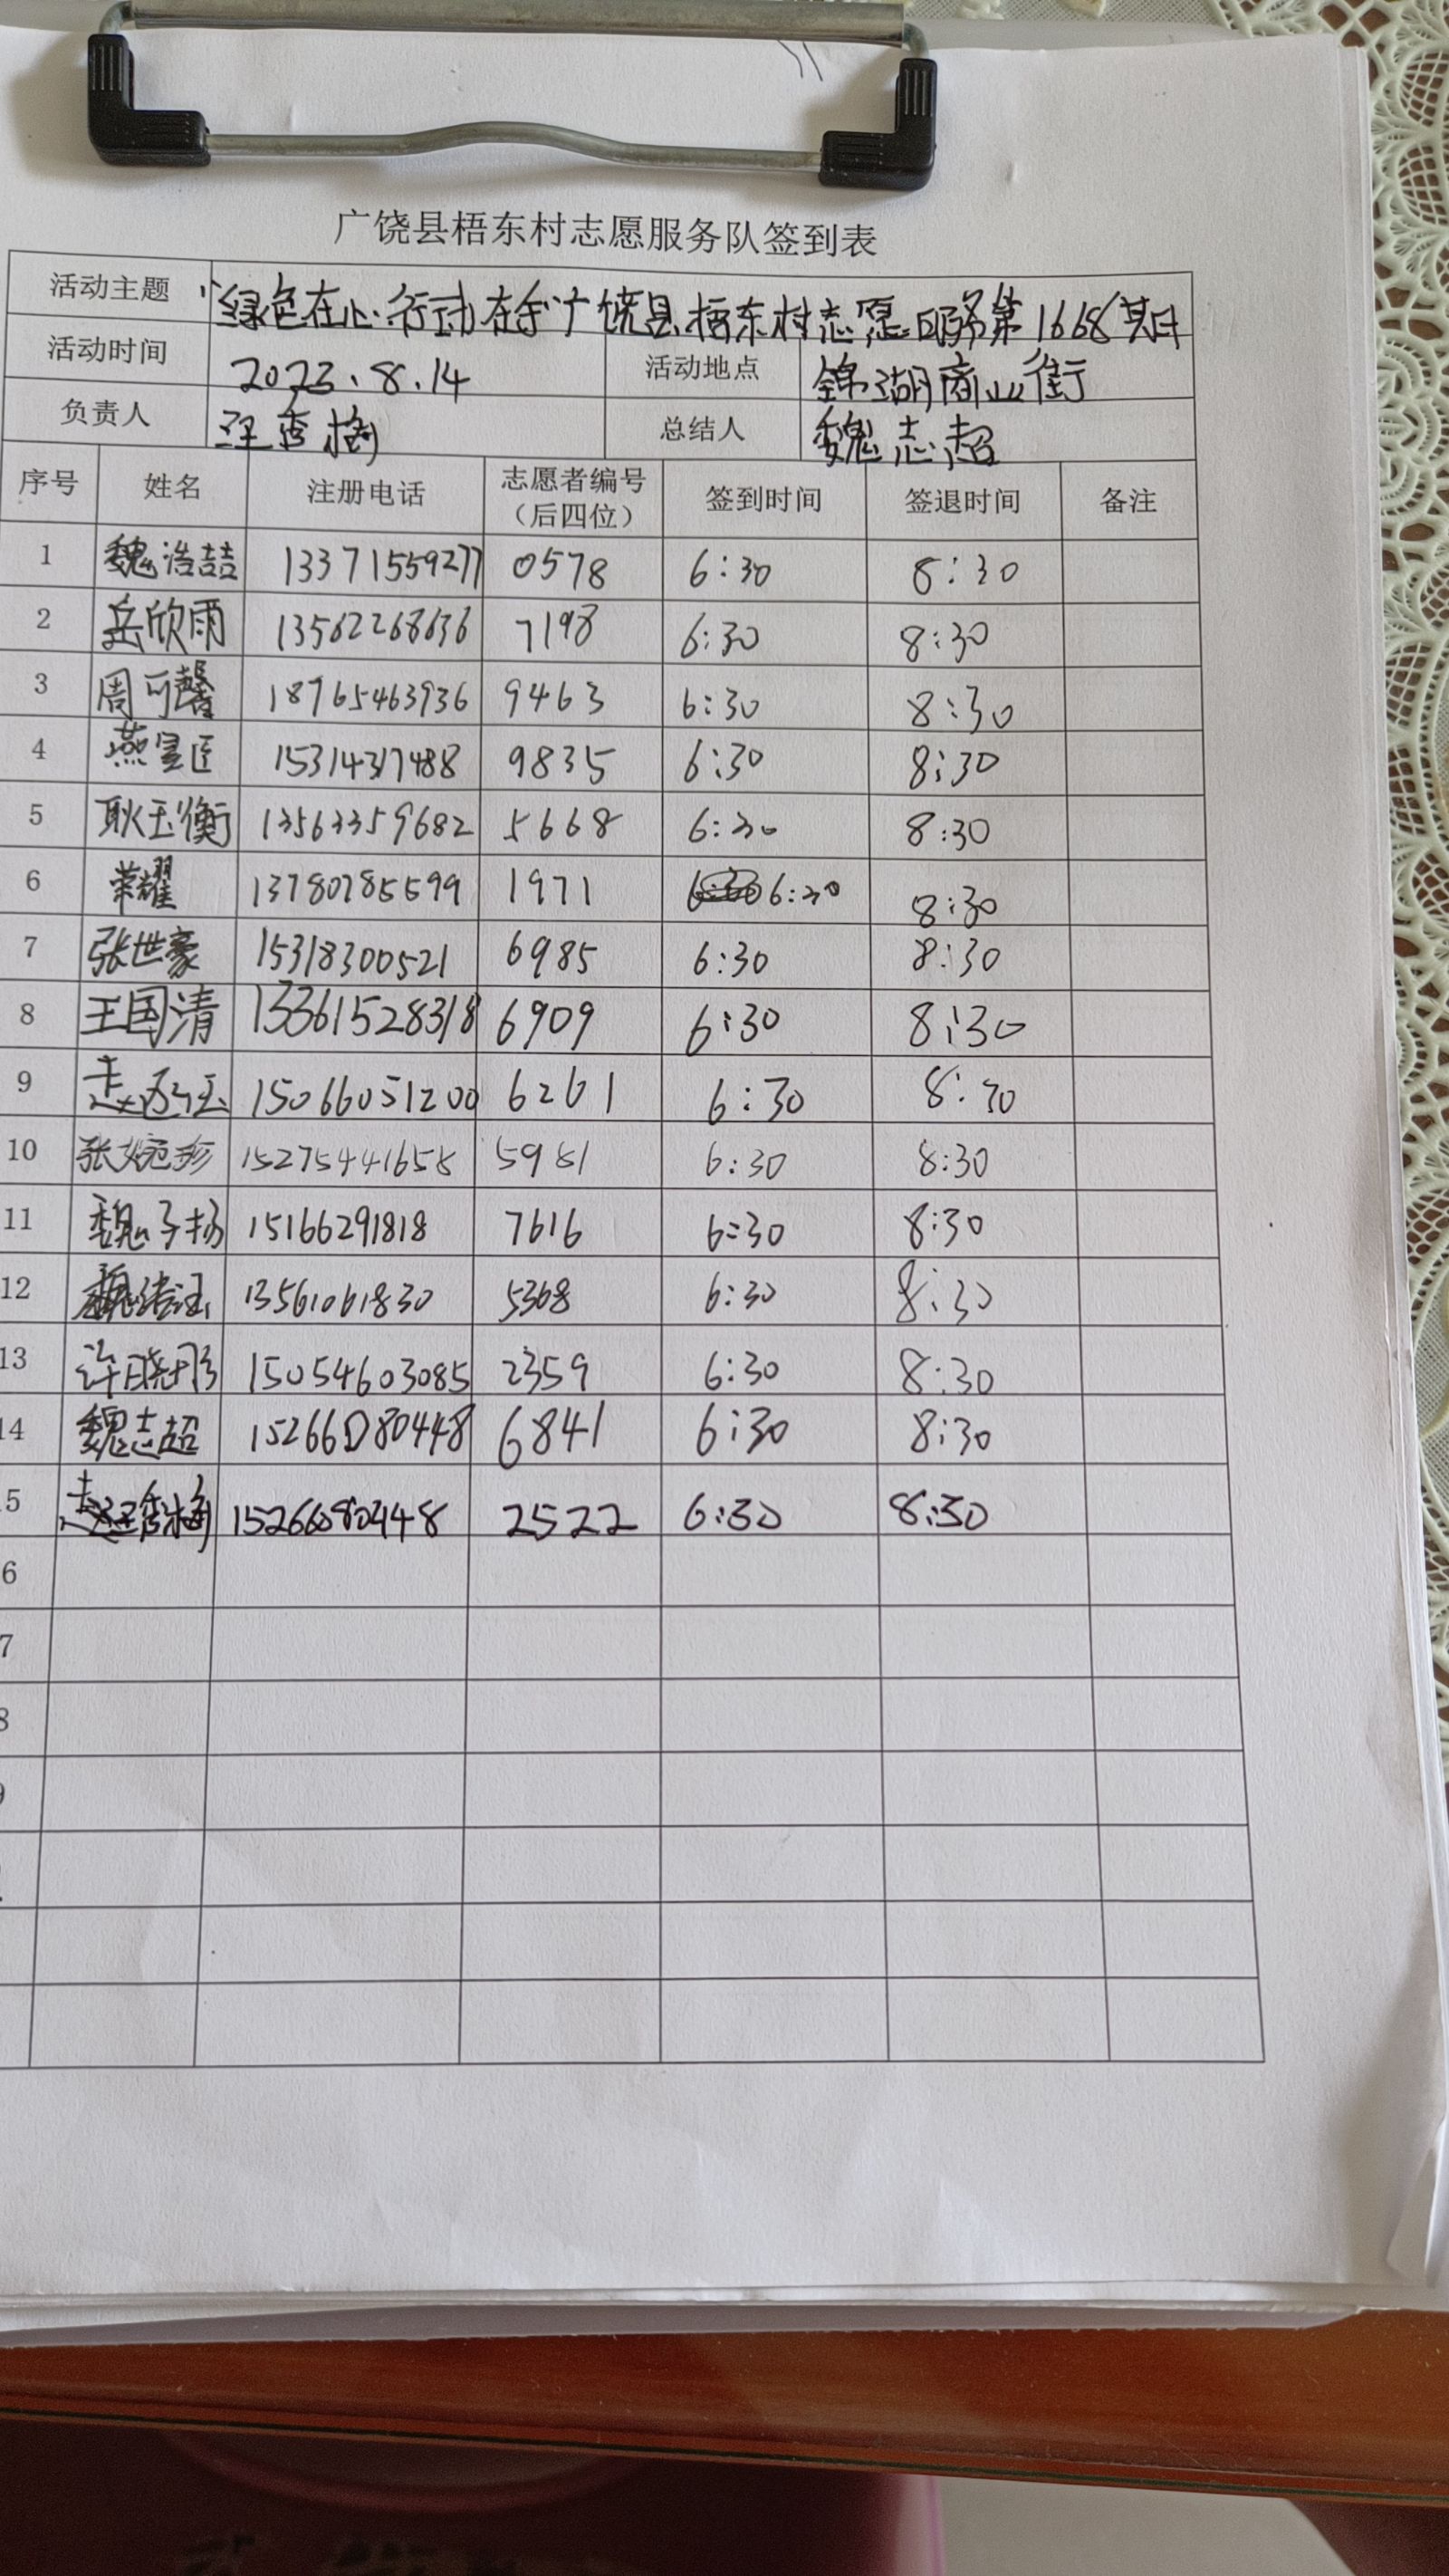 广饶县梧东村志愿服务队签到表
活动主题 “绿色在心·行动在手”广饶县梧东村志愿服务第1668期
活动时间 2023.8.14 活动地点 锦湖商业街
负责人 汪秀梅 总结人 魏志超
序号 姓名 注册电话 志愿者编号（后四位） 签到时间 签退时间 备注
1 魏浩喆 13371559277 0578 6:30 8:30
2 岳欣雨 13562268636 7198 6:30 8:30
3 周可馨 18765463936 9463 6:30 8:30
4 燕呈臣 15314317488 9835 6:30 8:30
5 耿玉衡 13563359682 5668 6:30 8:30
6 荣耀 13780785599 1971 6:30 8:30
7 张世豪 15318300521 6985 6:30 8:30
8 王国清 13361528318 6909 6:30 8:30
9 15066051200 6261 6:30 8:30
10 张婉珍 15275441658 5981 6:30 8:30
11 魏子扬 15166291818 7616 6:30 8:30
12 魏 13561061830 5368 6:30 8:30
13 许晓彤 15054603085 2359 6:30 8:30
14 魏志超 15266080448 6841 6:30 8:30
5 秀梅 15266080448 2522 6:30 8:30
6
7
8
9